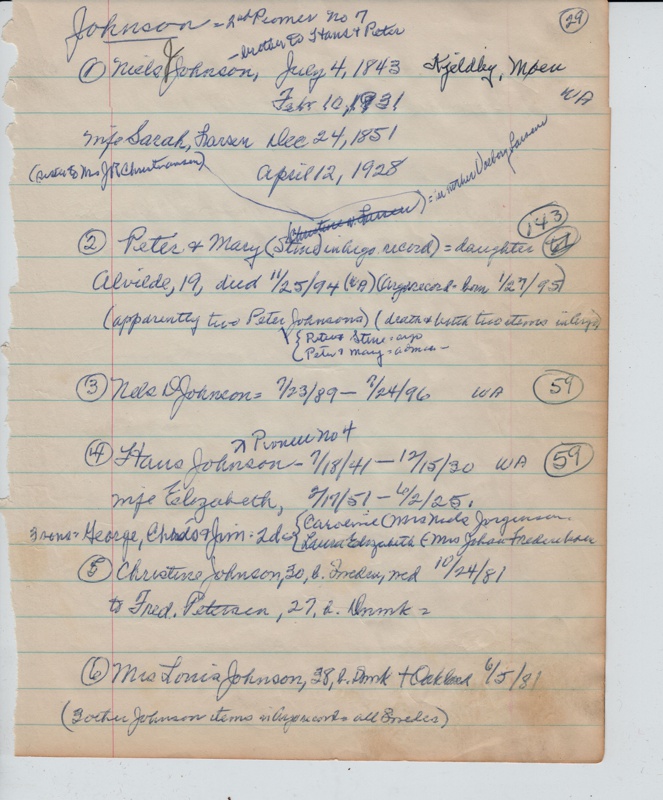 Johnson = 2nd Pioneer No 7
29
- brother to Hans & Peter
① Niels Johnson, July 4, 1843 Kjeldby, Moen
Feb 10, 1931 WA
wife Sarah, Larsen Dec 24, 1851
(sister to Mrs J Christiansen) April 12, 1928
(Christine Larsen) = mother Larsen
143
② Peter & Mary (Stine) in argo. record) = daughter
Alvilde, 19, died 11/25/94 (WA) (Argo record = born 1/27/95)
(apparently two Peter Johnsons) (death & birth two items in argo)
{ Peter & Stine = argo
( Peter & Mary =
③ Nels D Johnson = 7/23/89 - 7/24/96 WA 59
Pioneer No 4
④ Hans Johnson - 7/18/41 - 12/15/30 WA 59
wife Elizabeth, 2/17/51 - 6/2/25.
{ Caroline (Mrs Niels Jorgensen
3 sons = George, Chris & Jim = 2d = { Laura Elizabeth (Mrs Johan
⑤ Christine Johnson, 30, b. Sweden, wed 10/24/81
to Fred. Petersen, 27, b. Dnmk =
⑥ Mrs Louis Johnson, 38, b. Dmk + Oakland 6/5/81
(3 other Johnson items in argo records all Swedes)